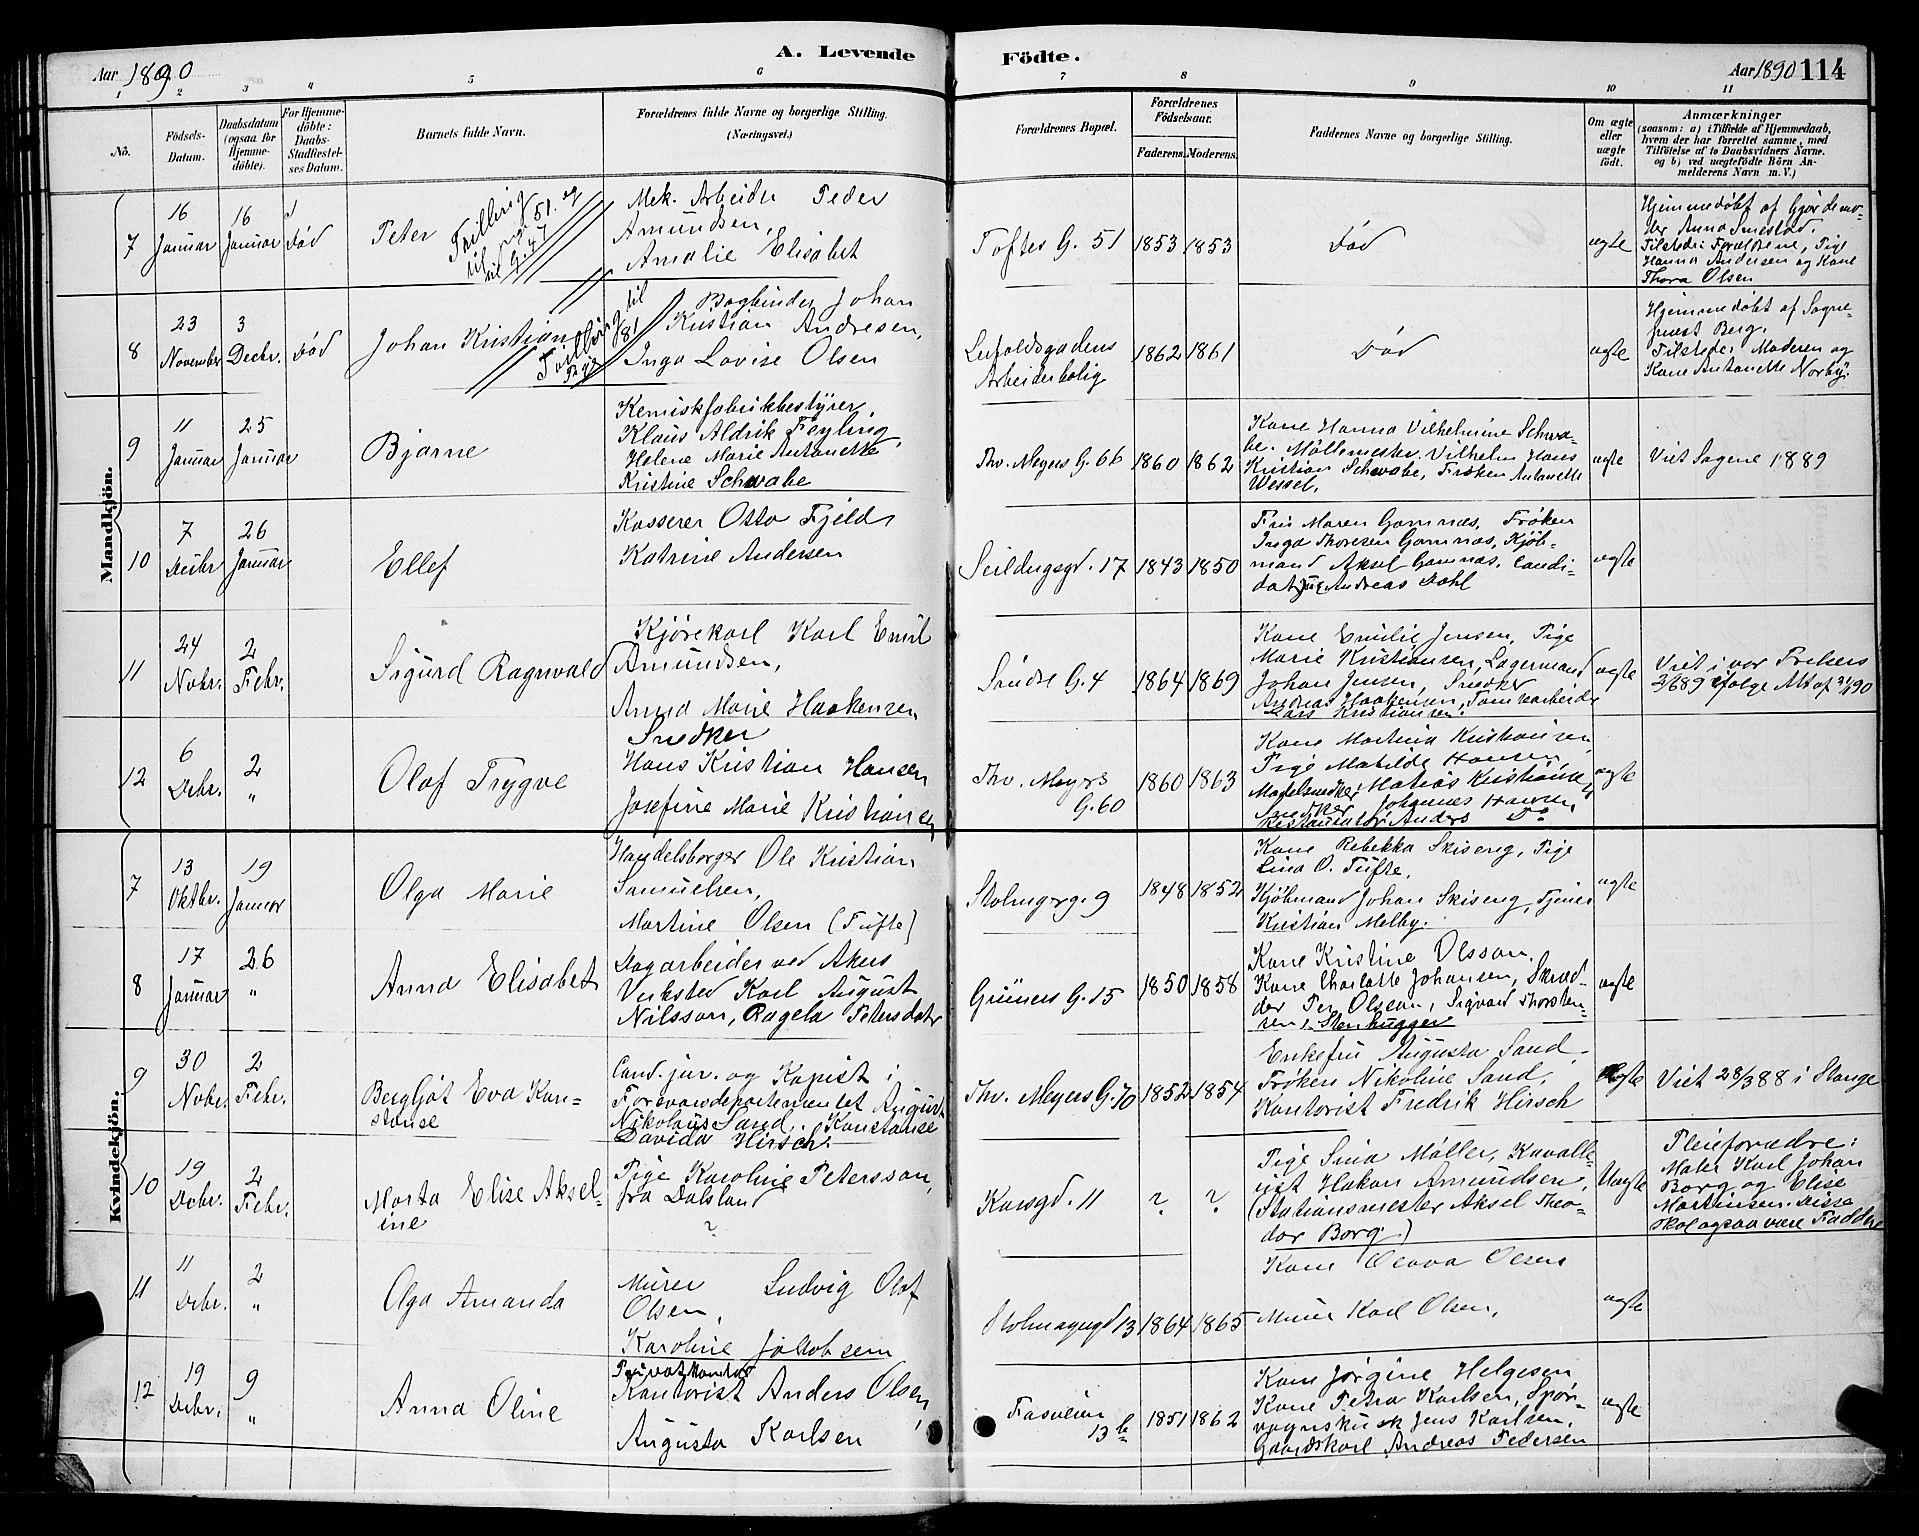 A. Levende Födte.
Aar 1890
Aar 1890 114
1 2 3 4 5 6 7 8 9 10 11
No.
Födsels-Datum.
Daabsdatum (ogsaa for Hjemmedöbte).
For Hjemmedöbte: Daabs-Stadfæstelses Datum.
Barnets fulde Navn.
Forældrenes fulde Navne og borgerlige Stilling. (Næringsvei.)
Forældrenes Bopæl.
Forældrenes Födselsaar.
Faderens. Moderens.
Faddernes Navne og borgerlige Stilling.
Om ægte eller uægte födt.
Anmærkninger
(saasom: a) i Tilfælde af Hjemmedaab, hvem der har forrettet samme, med Tilföielse af to Daabsvidners Navne, og b) ved uægtefödte Börn Anmelderens Navn m. V.)
Mandkjön.
7
16 Januar
16 Januar
Död
Peter
Tvilling til
Mek. Arbeider Peder
Amundsen,
Amalie Elisabet
Toftes G. 51
1853 1853
Död
ægte
Hjemmedöbt af Gjordemo-
der Anna Smestad.
Tilstede: Forældrene, Pige
Hanna Andersen og Kone
Thora Olsen
8
23 November
3 Decbr.
Död
Johan Kristian
Tvilling til
Bogbinder Johan
Kristian Andresen,
Inga Lovise Olsen
Arbeiderbolig
1862 1861
Död
ægte
Hjemmedöbt af Sogne-
prest Berg.
Tilstede: Moderen og
Kone Antonette Norby.
9
11 Januar
25 Januar
Bjarne
Kemiskfabrikbestyrer
Klaus Aldrik Feyling,
Helene Marie Antonette
Kristine Schwabe
Thv. Meyers G. 66
1860 1862
Kone Hanna Vilhelmine Schwa-
be. Möllemester Vilhelm Hans
Kristian Schwabe, Fröken Antonette
Wessel.
ægte
Viet Sagene 1889
10
7 Decbr
26 Januar
Ellef
Kasserer Otto Fjeld
Katrine Andersen
Seildugsgd. 17
1843 1850
Fru Maren Gamnæs, Fröken
Inga Thoresen Gamnæs, Kjöb-
mand Aksel Gamnæs, Candi-
dat jur Andreas Dahl
ægte
11
24 Nobr.
2 Febr.
Sigurd Ragnvald
Kjörekarl Karl Emil
Amundsen,
Anna Marie Haakensen
Söndre G. 4
1864 1869
Kone Emilie Jensen, Pige
Marie Kristiansen, Lagermand
Johan Jensen, Snedker
Andreas Haakensen, Tomtearbeider
Lars Kristiansen.
ægte
Viet i vor Frelsers
12
6 Debr.
2 "
Olaf Trygve
Snedker
Hans Kristian Hansen
Josefine Marie Kristiansen
Thv. Meyers
G. 60
1860 1863
Kone Martina Kristiansen
Pige Matilde Hansen
Modelsnedker Matias Kristiansen
Snedker Johannes Hansen
Restauratör Anders Do
ægte
Kvindekjön.
7
13 Oktbr.
19 Januar
Olga Marie
Handelsborger Ole Kristian
Samuelsen,
Martine Olsen (Tufte)
Stolmagerg. 9
1848 1852
Kone Rebekka Skiseng, Pige
Lina O. Tufte,
Kjöbmand Johan Skiseng, Tjener
Kristian Melby.
ægte
8
17 Januar
26 "
Anna Elisabet
Dagarbeider ved Akers
Verksted Karl August
Nilsson, Ragela Petersdatr
Grüners G. 15
1850 1858
Kone Kristine Olsson,
Kone Charlotte Johansen, Skræd-
der Per Olsson, Sigvard Thorsten-
sen, Stenhugger
ægte
9
30 Nobr.
2 Febr.
Bergljot Eva Kon-
stanse
Cand. jur. og Kopist i
Forsvarsdepartementet August
Nikolaus Sand, Konstanse
Davida Hirsch.
Thv. Meyers G. 70
1852 1854
Enkefru Augusta Sand,
Fröken Nikoline Sand,
Kontorist Fredrik Hirsch
ægte
Viet 28/3 88 i Stange
10
19 Debr.
2 Febr.
Marta Elise Aksel-
ine
Pige Karoline Petersson,
fra Dalsland
?
Korsgd. 11
? ?
Pige Sina Möller, Kavalle-
rist Hakon Amundsen,
(Stationsmester Aksel Theo-
dor Borg)
Uægte
Pleieforældre:
Maler Karl Johan
Borg og Elise
Martinsen. Disse
skal ogsaa være Faddere
11
11 Debr.
2 "
Olga Amanda
Murer Ludvig Olaf
Olsen,
Karoline Jakobsen
13
1864 1865
Kone Olava Olsen
Murer Karl Olsen,
ægte
12
19 Debr.
9 "
Anna Oline
Kontorist Anders Olsen,
Augusta Karlsen
Fasveien
13 b
1851 1862
Kone Jörgine Helgesen,
Kone Petra Karlsen, Spor-
vognskusk Jens Karlsen,
Gaardskarl Andreas Pedersen
ægte